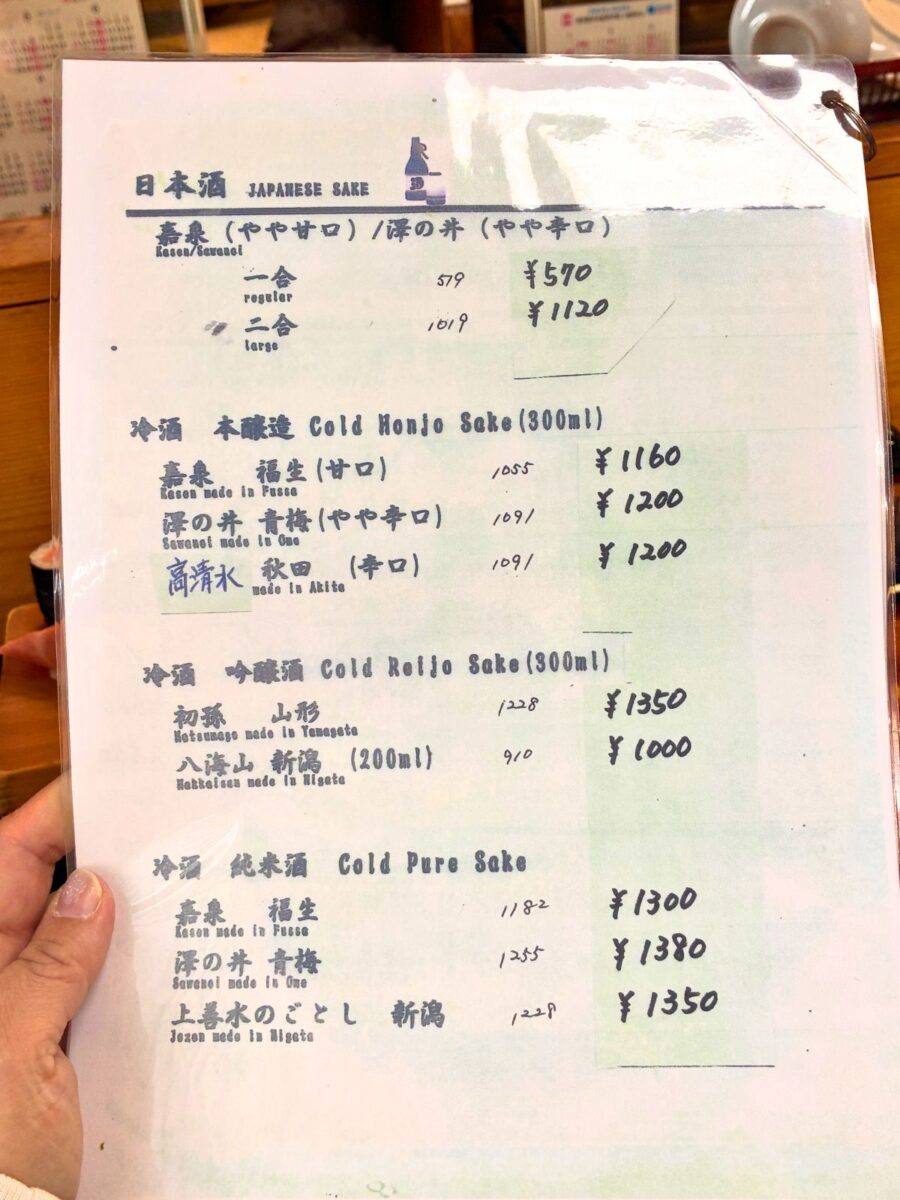 日本酒 JAPANESE SAKE
嘉泉 (やや甘口) /澤の井 (やや辛口)
Kasen/Sawanoi
一合 519 ¥570
regular
二合 1019 ¥1120
large
冷酒 本醸造 Cold Honjo Sake(300ml)
嘉泉 福生(甘口) 1055 ¥1160
Kasen made in Fussa
澤の井 青梅(やや辛口) 1091 ¥1200
Sawanoi made in Ome
高清水 秋田 (辛口) 1091 ¥1200
made in Akita
冷酒 吟醸酒 Cold Reijo Sake(300ml)
初孫 山形 1228 ¥1350
Hatsumago made in Yamagata
八海山 新潟 (200ml) 910 ¥1000
Hakkaisan made in Nigata
冷酒 純米酒 Cold Pure Sake
嘉泉 福生 1182 ¥1300
Kasen made in Fussa
澤の井 青梅 1255 ¥1380
Sawanoi made in Ome
上善水のごとし 新潟 1228 ¥1350
Jozen made in Nigata